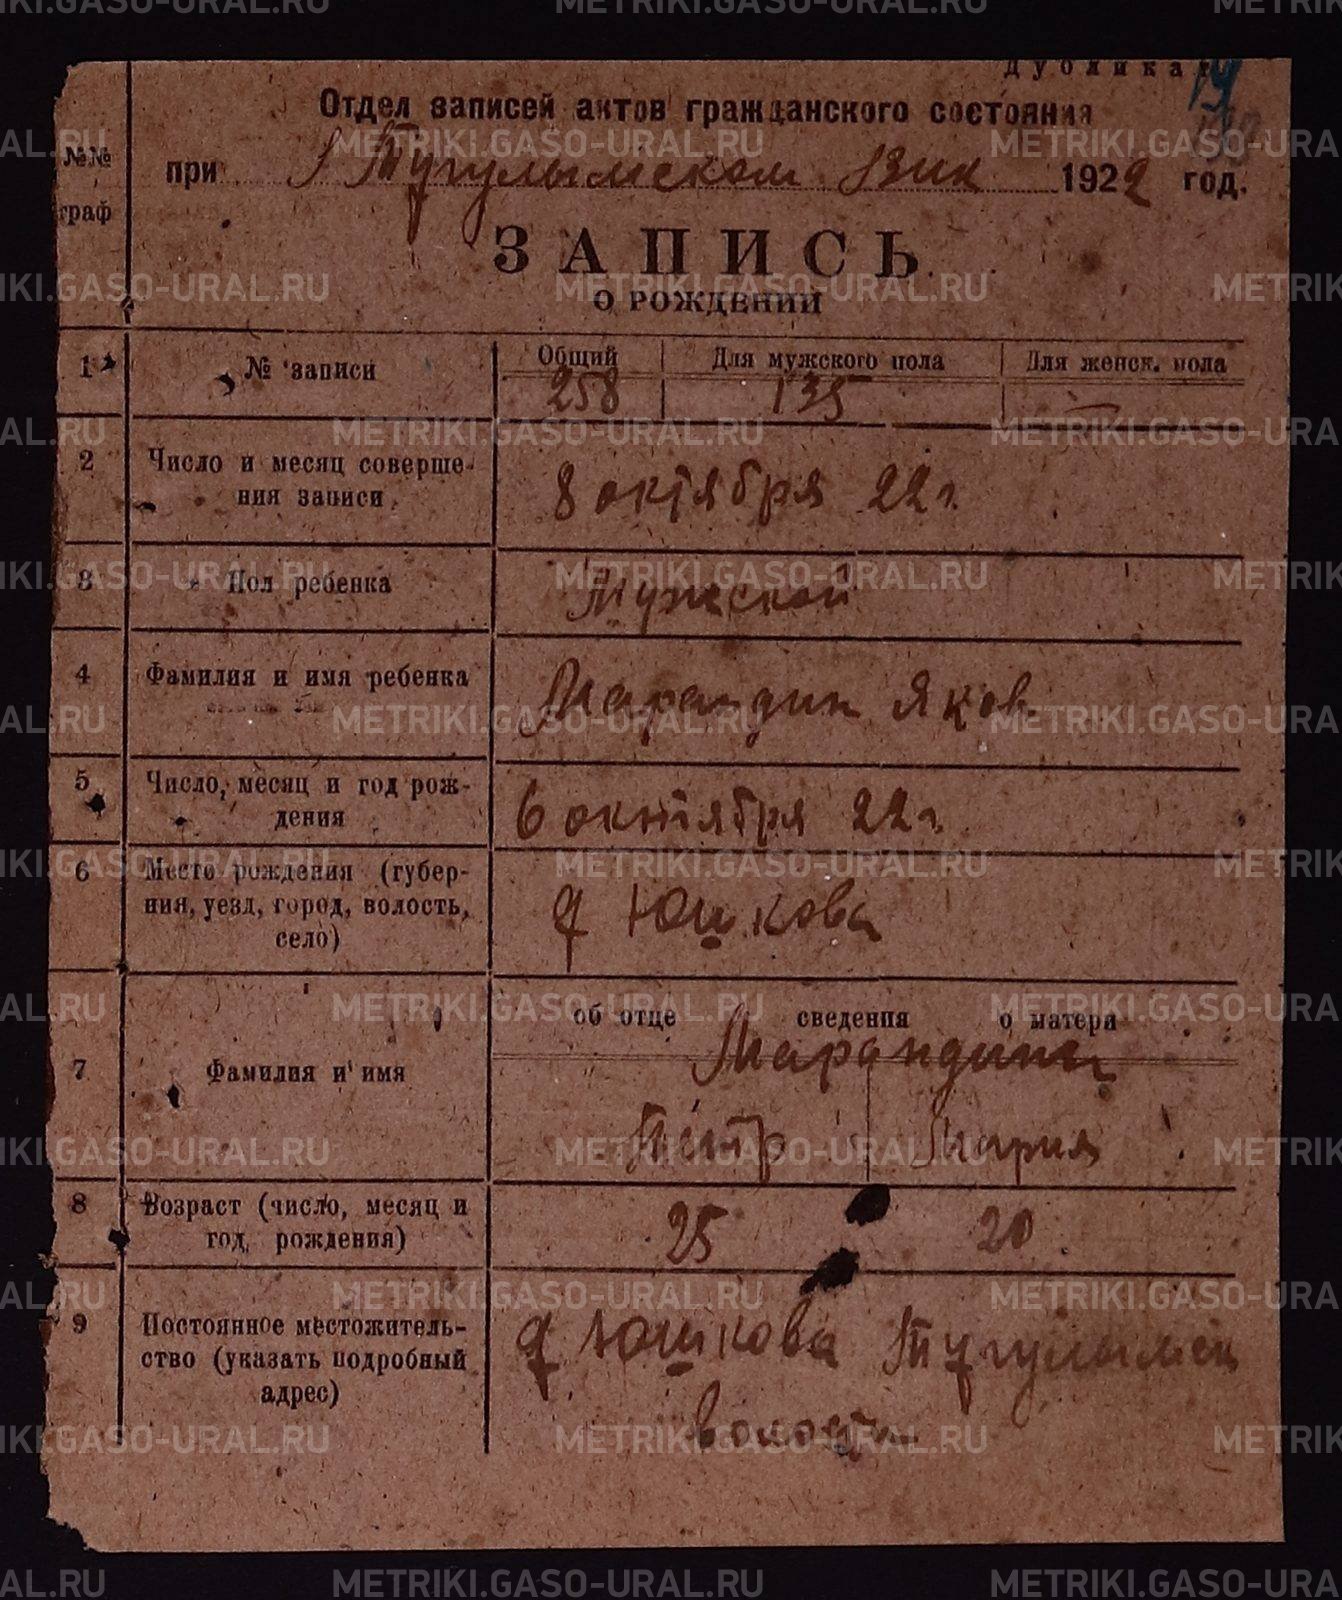 Дубликат
19
Отдел записей актов гражданского состояния
№№ граф
при Тугулымском Вик 1922 год.
ЗАПИСЬ
О РОЖДЕНИИ
1 № записи Общий Для мужского пола Для женск. пола
258 135 —
2 Число и месяц соверше-
ния записи
8 октября 22 г.
3 Пол ребенка Мужской
4 Фамилия и имя ребенка Марандин Яков
5 Число, месяц и год рож-
дения
6 октября 22 г.
6 Место рождения (губер-
ния, уезд, город, волость,
село)
д Юшкова
об отце сведения о матери
7 Фамилия и имя Марандины
Петр Мария
8 Возраст (число, месяц и
год рождения)
25 20
9 Постоянное местожитель-
ство (указать подробный
адрес)
д Юшкова Тугулымск
волости
METRIKI.GASO-URAL.RU